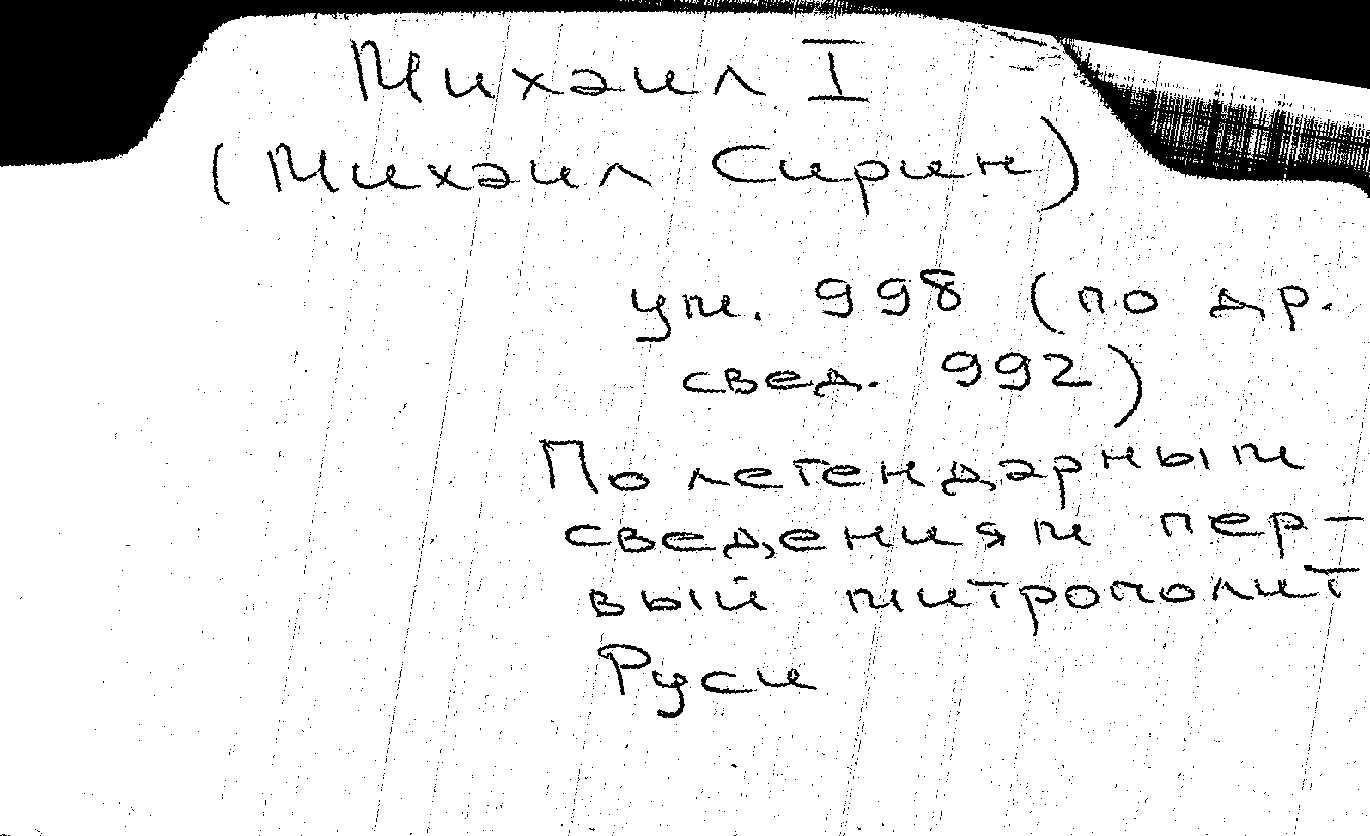 Михаил I
(Михаил Сирин)
ум. 998 (по др.
свед. 992)
По легендарным
сведениям пер-
вый митрополит
Руси